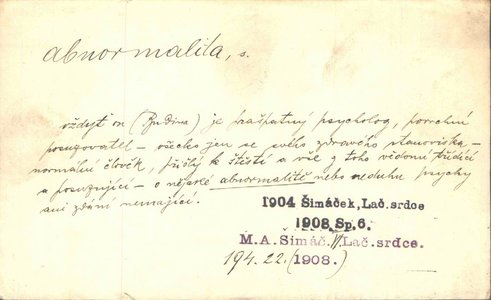 abnormalita, s.
vždyť on (Rudina) je prašpatný psycholog, povrchní
posuzovatel – všecko jen se svého zdravého stanoviska –
normální člověk, přišlý k štěstí a vše z toho vědomí třídící
a posuzující – o nějaké abnormalitě nebo neduhu psychy
ani zdání nemající.
1904 Šimáček, Lač. srdce
1908 Sp. 6.
M. A. Šimáč. VI Lač. srdce.
194. 22. (1908.)